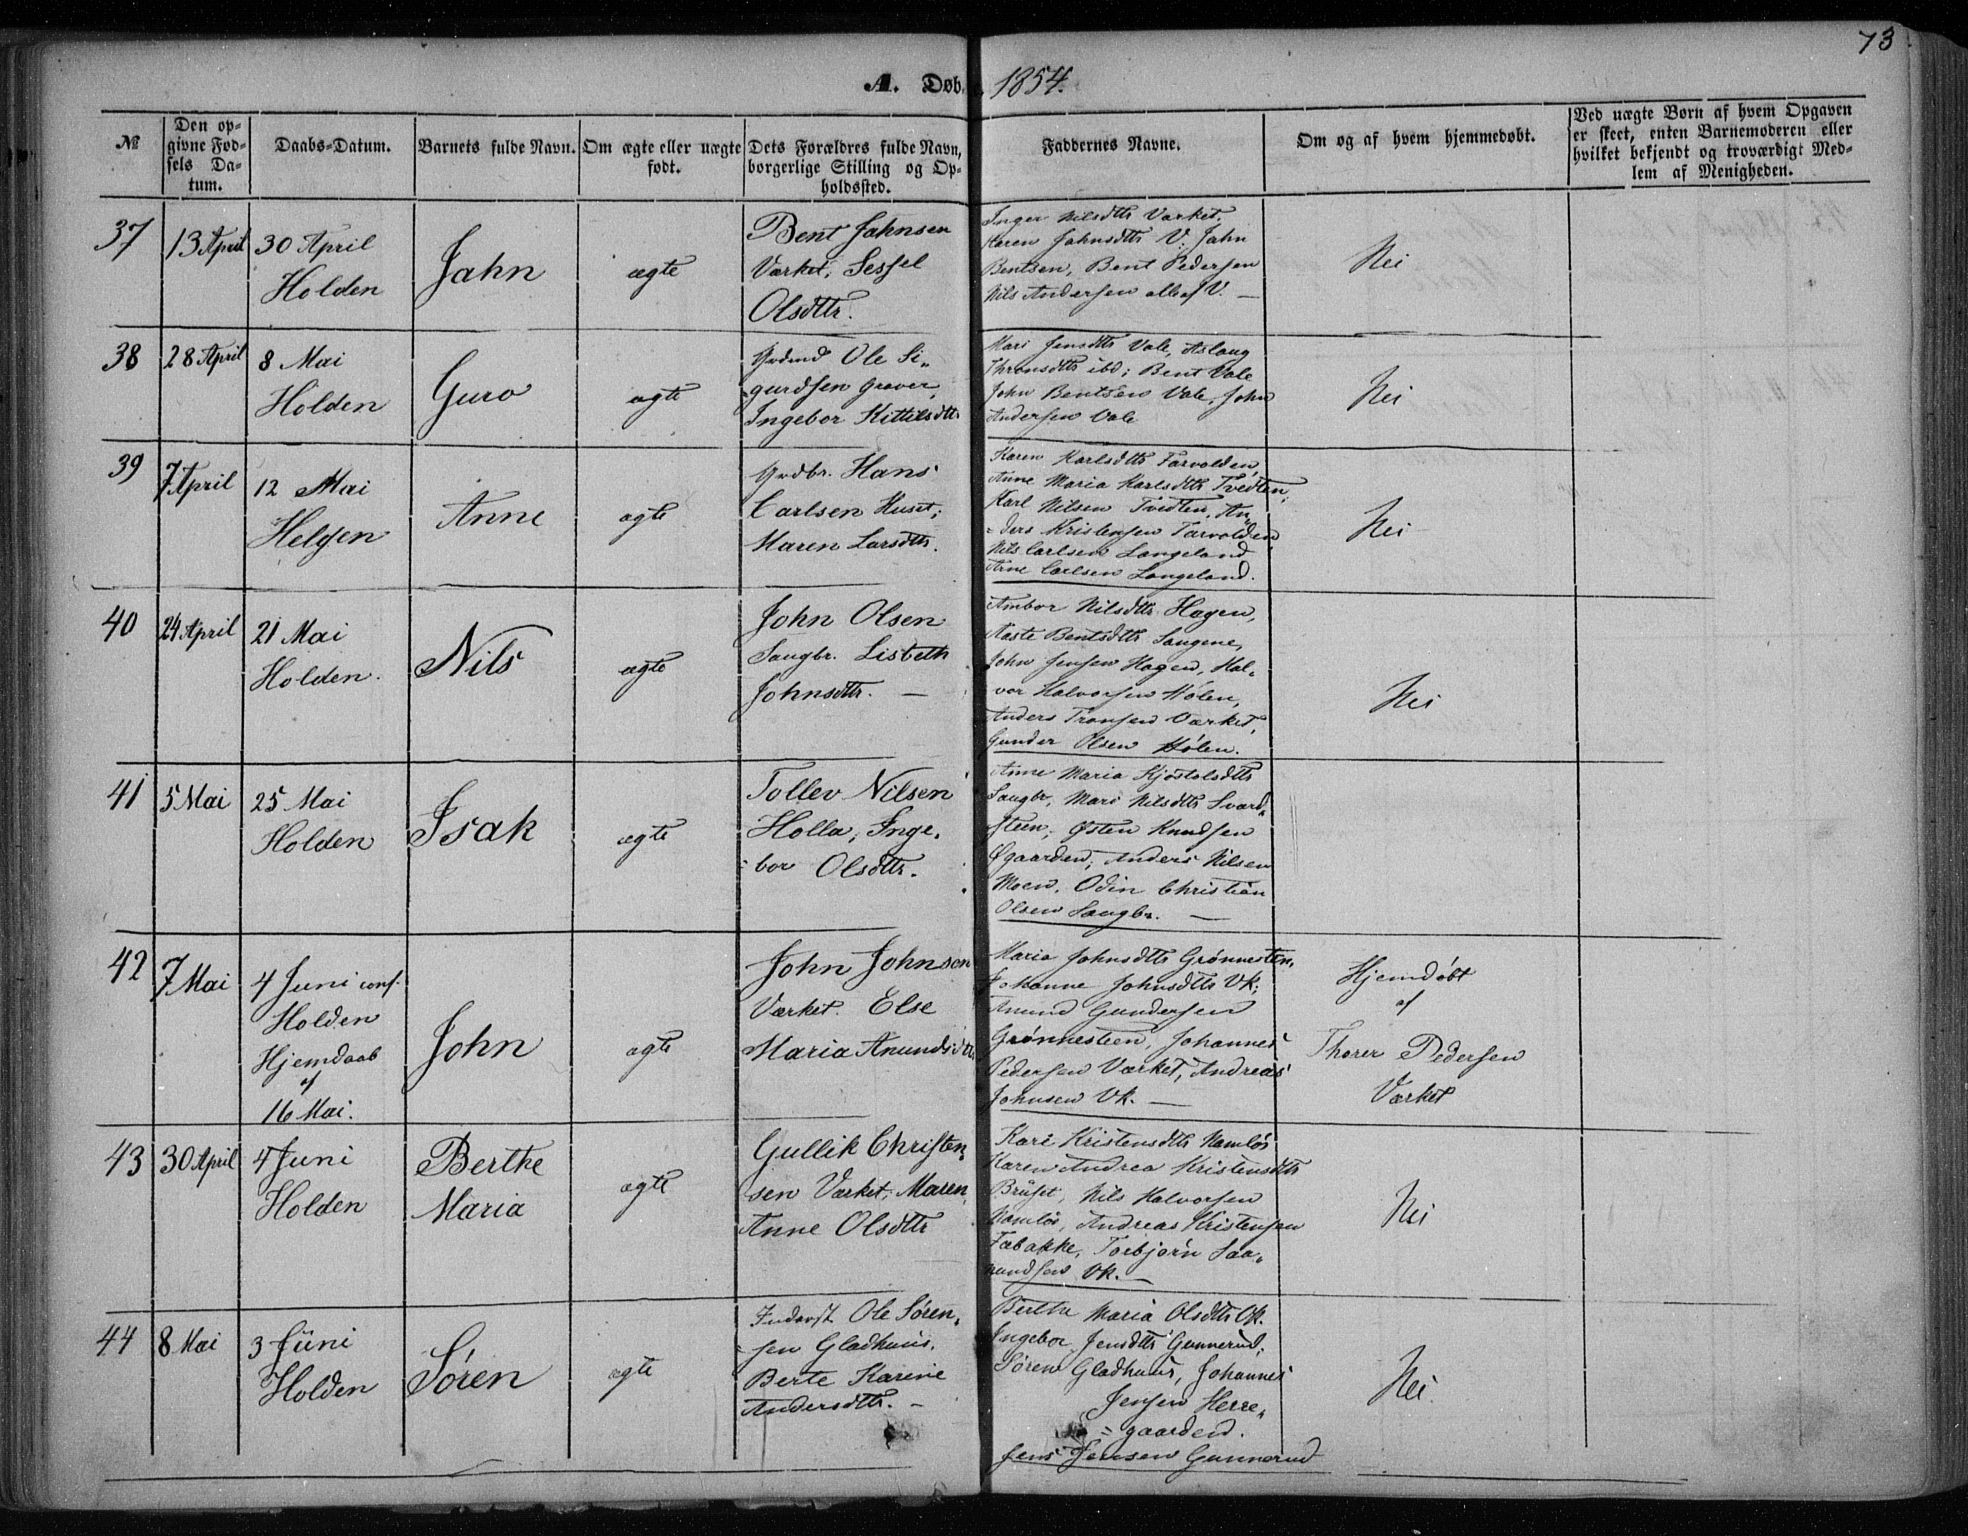 73
A. Døb. 1854.
№
Den opgivne Fødsels Datum.
Daabs-Datum.
Barnets fulde Navn.
Om ægte eller uægte født.
Dets Forældres fulde Navn, borgerlige Stilling og Opholdssted.
Faddernes Navne.
Om og af hvem hjemmedøbt.
Ved uægte Børn af hvem Opgaven er skeet, enten Barnemoderen eller hvilket bekjendt og troværdigt Medlem af Menigheden.
37
13 April
30 April
Holden
Jahn
ægte
Bent Jahnsen
Værket, Sessel
Olsdttr.
Inger Nilsdttr Værket.
Karen Jahnsdttr V: Jahn
Bentsen, Bent Pedersen
Nils Andersen alle af V. —
Nei
38
28 April
8 Mai
Holden
Guro
ægte
Ole Si„
gurdsen Graver,
Ingebor Kittilsdttr
Mari Jensdttr Vale, Aslaug
ibd; Bent Vale
John Bentsen Vale, John
Andersen Vale
Nei
39
7 April
12 Mai
Helgen
Anne
ægte
Grdbr. Hans
Carlsen Huset;
Maren Larsdttr.
Karen Karlsdttr Tarvolden,
Anne Maria Karlsdttr Tvedten;
Karl Nilsen Tvedten, An„
ders Kristensen Tarvolden,
Nils Carlsen Langeland
Arne Carlsen Langeland.
Nei
40
24 April
21 Mai
Holden.
Nils
ægte
John Olsen
Saugbr. Lisbeth
Johnsdttr. —
Ambor Nilsdttr Hagen,
Aaste Bentsdttr Saugene,
John Jensen Hagen, Hal„
vor Halvorsen Hølen,
Anders Tronsen Værket,
Gunder Olsen Hølen.
Nei
41
5 Mai
25 Mai
Holden
Isak
ægte
Tollev Nilsen
Holla, Inge„
bor Olsdttr.
Anne Maria Kjøstolsdttr
Saugbr, Mari Nilsdttr Svard„
steen; Østen Knudsen
Øgaarden; Anders Nilsen
Moen, Odin Christian
Olsen Saugbr. —
42
7 Mai
4 Juni conf.
Holden
Hjemdaab
af
16 Mai.
John
ægte
John Johnsen
Værket. Else
Maria Anundsdttr
Maria Johnsdttr Grønnesteen,
Johanne Johnsdttr Vk;
Anund Gundersen
Grønnesteen, Johannes
Pedersen Værket, Andreas
Johnsen Vk. —
Hjemdøbt
af
Thorer Pedersen
Værket
43
30 April
4 Juni
Holden
Berthe
Maria
ægte
Gullik Christen„
sen Værket, Maren
Anne Olsdttr
Kari Kristensdttr Namløs
Karen Andrea Kristensdttr
Brüset, Nils Halvorsen
Namløs, Andreas Kristensen
Fæbakke, Torbjørn Saa„
mundsen Vk. —
Nei
44
8 Mai
3 Jüni
Holden
Søren
ægte
Inderst Ole Søren„
sen Gladhuus,
Berte Karine
Andersdttr. —
Berthe Maria Olsdttr Vk.
Ingebor Jensdttr Gunnerud,
Søren Gladhuus, Johannes
Jensen Herre„
gaarden.
Jens Jensen Gunnerud
Nei.